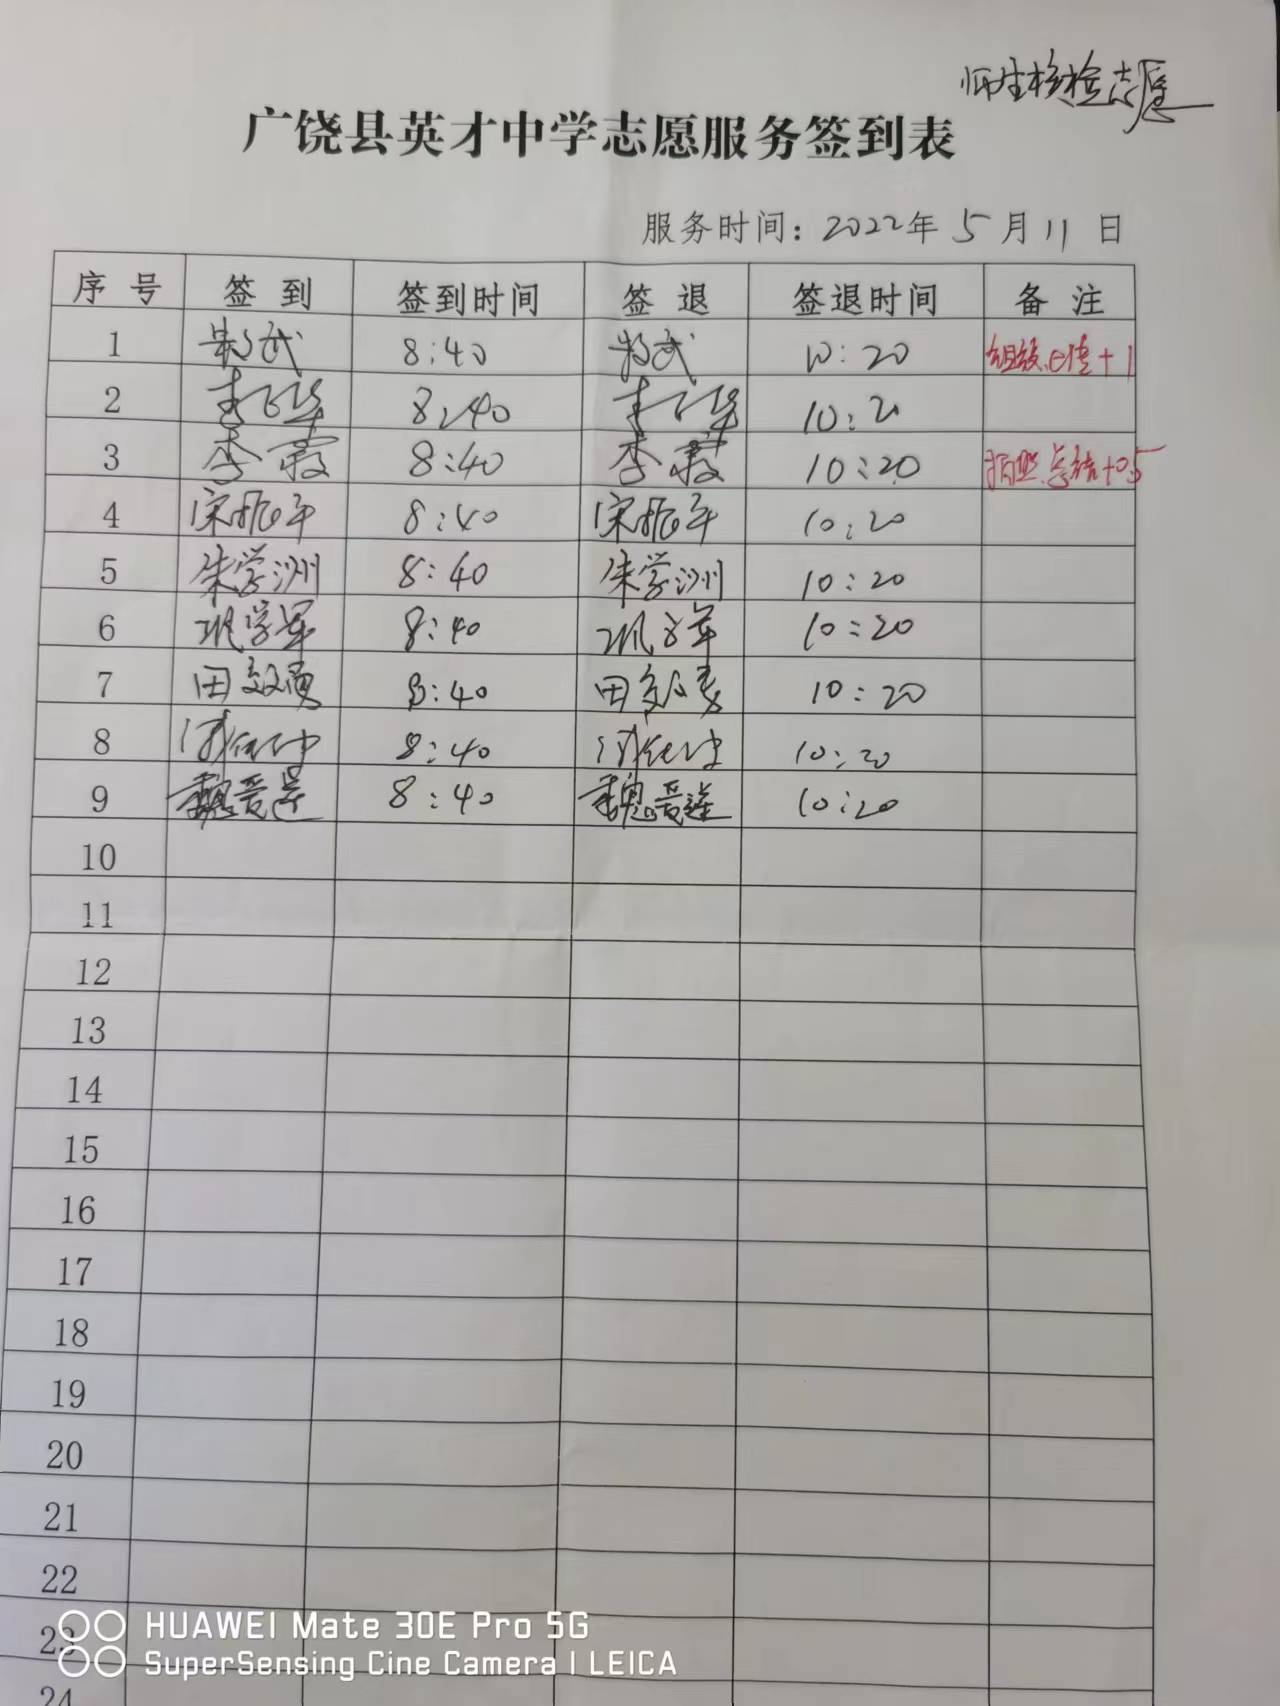 师生核检志愿
广饶县英才中学志愿服务签到表
服务时间：2022年 5 月 11 日
序号 签到 签到时间 签退 签退时间 备注
1 8:40 10:20 +1
2 8:40 10:20
3 李霞 8:40 李霞 10:20 拍照.总结+0.5
4 宋振平 8:40 宋振平 10:20
5 朱学洲 8:40 朱学洲 10:20
6 巩学军 8:40 巩学军 10:20
7 田 8:40 田 10:20
8 8:40 10:20
9 魏晋莲 8:40 魏晋莲 10:20
10
11
12
13
14
15
16
17
18
19
20
21
22
23
24
HUAWEI Mate 30E Pro 5G
SuperSensing Cine Camera | LEICA